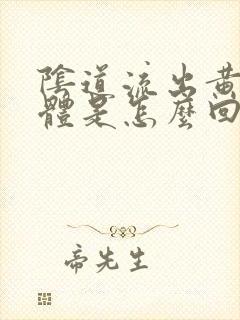 陰道流出黃
體是怎麼回
帝先生